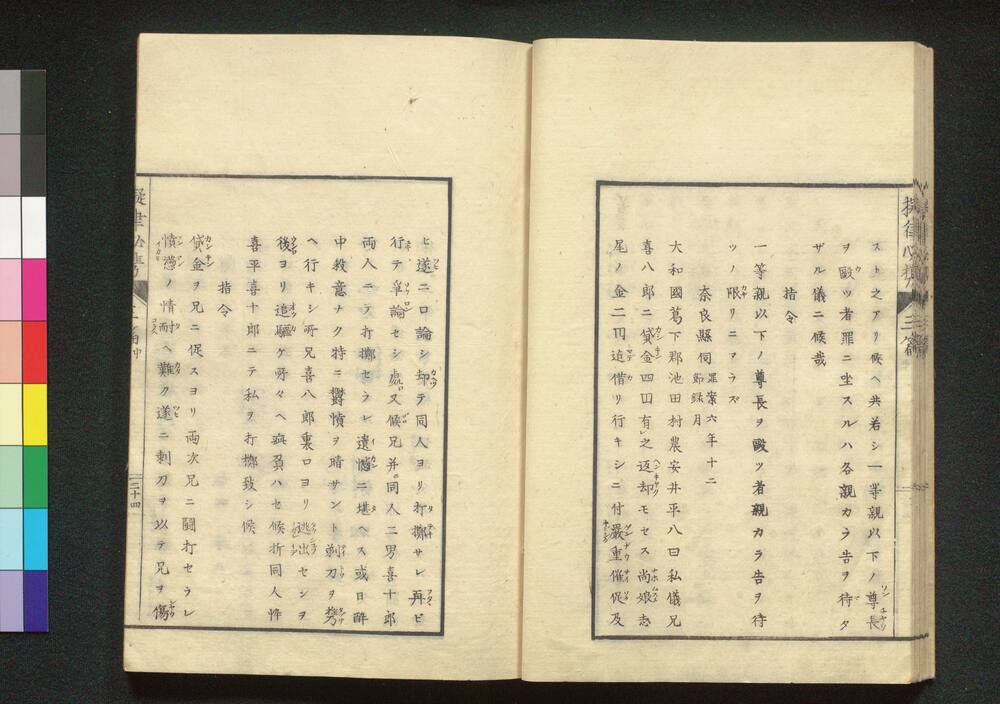 擬律必携
三篇
スト之アリ候ヘ共若シ一等親以下ノ尊長
ヲ毆ツ者罪ニ坐スルハ各親カラ告ヲ待タ
ザル儀ニ候哉
指令
一等親以下ノ尊長ヲ毆ツ者親カラ告ヲ待
ツノ限リニアラズ
奈良縣伺 罪案六年十二
節録月
大和國葛下郡池田村農安井平八曰私儀兄
喜八郎ニ貸金四円有之返却モセス尚娘志
尾ノ金二円追借リ行キシニ付嚴重催促及
ヒ遂ニ口論シ却テ同人ヨリ打擲サレ再ヒ
行テ爭論セシ處又候兄并同人二男喜十郎
両人ニテ打擲セラレ遺憾ニ堪ヘス或日酔
中殺意ナク特ニ欝憤ヲ晴サント剃刀ヲ携
ヘ行キシ所兄喜八郎裏口ヨリ逃出セシヲ
後ヨリ追驅ケ所々ヘ疵負ハセ候折同人忰
喜平喜十郎ニテ私ヲ打擲致シ候
指令
貸金ヲ兄ニ促スヨリ両次兄ニ鬪打セラレ
憤懣ノ情耐ヘ難ク遂ニ剃刀ヲ以テ兄ヲ傷
二十四